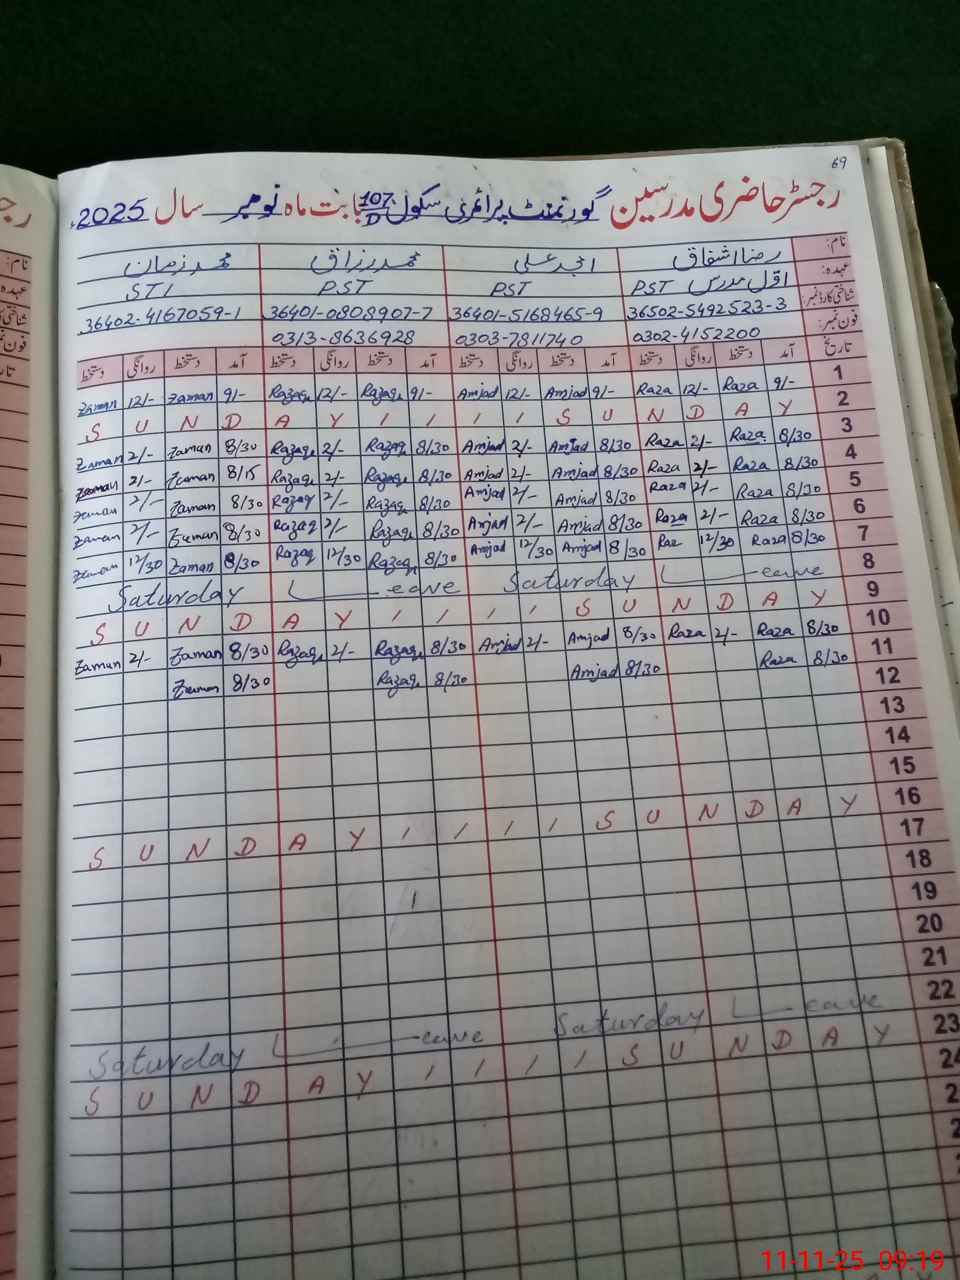 69
رجسٹر حاضری مدرسین گورنمنٹ پرائمری سکول 107/D بابت ماہ نومبر سال 2025ء
نام: رضا اشفاق امجد علی محمد رزاق محمد زمان
عہدہ: اول مدرس PST PST PST STI
شناختی کارڈ نمبر: 36502-5492523-3 36401-5168465-9 36401-0808907-7 36402-4167059-1
فون نمبر: 0302-4152200 0303-7811740 0313-8636928
تاریخ آمد دستخط روانگی دستخط آمد دستخط روانگی دستخط آمد دستخط روانگی دستخط آمد دستخط روانگی دستخط
Zaman 12/- Zaman 9/- Razaq 12/- Razaq 9/- Amjad 12/- Amjad 9/- Raza 12/- Raza 9/- 1
S U N D A Y / / / / S U N D A Y 2
Zaman 2/- Zaman 8/30 Razaq 2/- Razaq 8/30 Amjad 2/- Amjad 8/30 Raza 2/- Raza 8/30 3
Zaman 2/- Zaman 8/15 Razaq 2/- Razaq 8/30 Amjad 2/- Amjad 8/30 Raza 2/- Raza 8/30 4
Zaman 2/- Zaman 8/30 Razaq 2/- Razaq 8/30 Amjad 2/- Amjad 8/30 Raza 2/- Raza 8/30 5
Zaman 2/- Zaman 8/30 Razaq 2/- Razaq 8/30 Amjad 2/- Amjad 8/30 Raza 2/- Raza 8/30 6
Zaman 12/30 Zaman 8/30 Razaq 12/30 Razaq 8/30 Amjad 12/30 Amjad 8/30 Raz 12/30 Raza 8/30 7
Saturday Leave Saturday Leave 8
S U N D A Y / / / / S U N D A Y 9
Zaman 2/- Zaman 8/30 Razaq 2/- Razaq 8/30 Amjad 2/- Amjad 8/30 Raza 2/- Raza 8/30 10
Zaman 8/30 Razaq 8/30 Amjad 8/30 Raza 8/30 11
12
13
14
15
S U N D A Y / / / / S U N D A Y 16
17
18
19
20
21
Saturday Leave Saturday Leave 22
S U N D A Y / / / / S U N D A Y 23
24
2
2
رجـ
نام:
عہدہ
شناختی
فون نمـ
تار
11-11-25 09:19